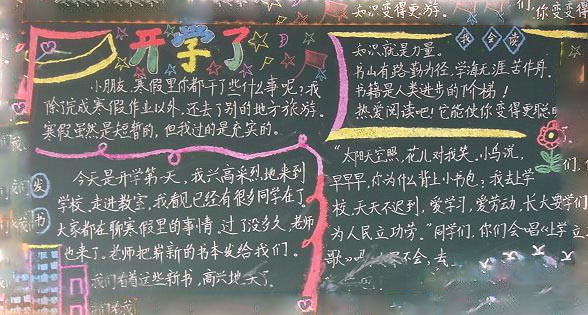 知识变得更
们
你变得
开学了
小朋友,寒假里你都干了些什么事呢?我
除了完成寒假作业以外,还去了别的地方旅游。
寒假虽然是短暂的,但我过的是充实的。
今天是开学第一天,我兴高采烈地来到
学校,走进教室,我看见已经有很多同学在了,
大家都在聊寒假里的事情,过了没多久,老师
也来了。老师把崭新的书本发给我们。
我们看着这些新书,高兴地
发
书
我会读
知识就是力量。
书山有路勤为径,学海无涯苦作舟。
书籍是人类进步的阶梯!
热爱阅读吧!它能使你变得更聪
"太阳天空照,花儿对我笑。小鸟说,
早早早,你为什么背上小书包?我去上学
校,天天不迟到,爱学习,爱劳动,长大要
为人民立功劳。"同学们,你们会唱《上学
歌》吗
不会,去